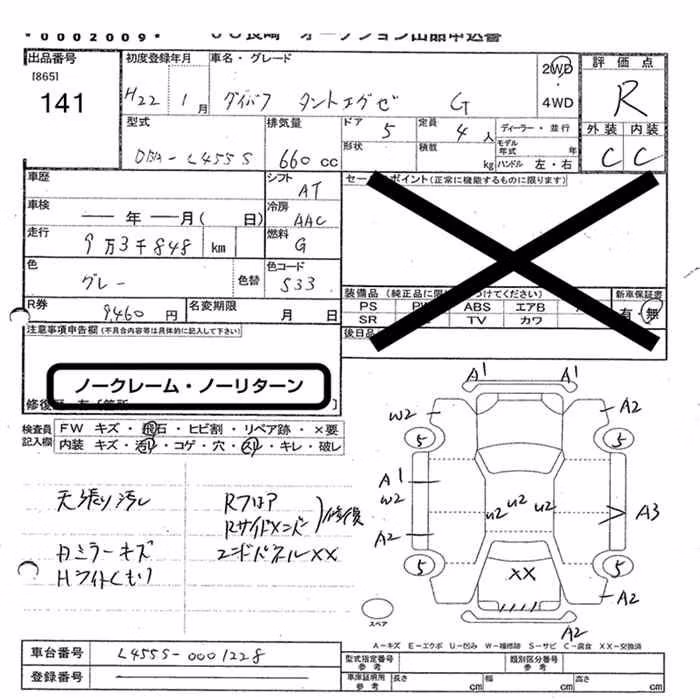 *0002009*
JU長崎 オークション出品申込書
出品番号
[865]
141
初度登録年月
H22 1月
車名・グレード
ダイハツ タントエグゼ G
2WD
・
4WD
評価点
R
外装 内装
C C
型式
DBA-L455S
排気量
660cc
ドア 5
形状
定員 4人
積載 kg
ディーラー・並行
モデル年式 年
ハンドル 左・右
車歴
シフト AT
セールスポイント(正常に機能するものに限ります)
車検 ― 年 ― 月( 日)
冷房 AAC
走行 9万3千848 km
燃料 G
色 グレー 色替
色コード S33
R券 9,460円
名変期限 月 日
装備品(純正品に限
つけてください)
新車保証書
有・無
PS ABS エアB
SR TV カワ
後日品
注意事項申告欄(不具合内容等は具体的に記入して下さい)
ノークレーム・ノーリターン
検査員記入欄
FW キズ・飛石・ヒビ割・リペア跡・×要
内装 キズ・汚れ・コゲ・穴・スレ・キレ・破レ
天張り汚れ
Rフロア
Rサイドメンバー
)修復
エンドパネルXX
ミラーキズ
ライトくもり
A1 A1
W2 A2
5 5
A1
W2
U2 U2 U2
A3
A2
5 5
XX
A2
A2
スペア
A-キズ E-エクボ U-凹み W-補修跡 S-サビ C-腐食 XX-交換済
車台番号 L455S-0001228
登録番号
型式指定番号 参考
類別区分番号 参考
車庫証明用 参考
長さ cm 幅 cm 高さ cm